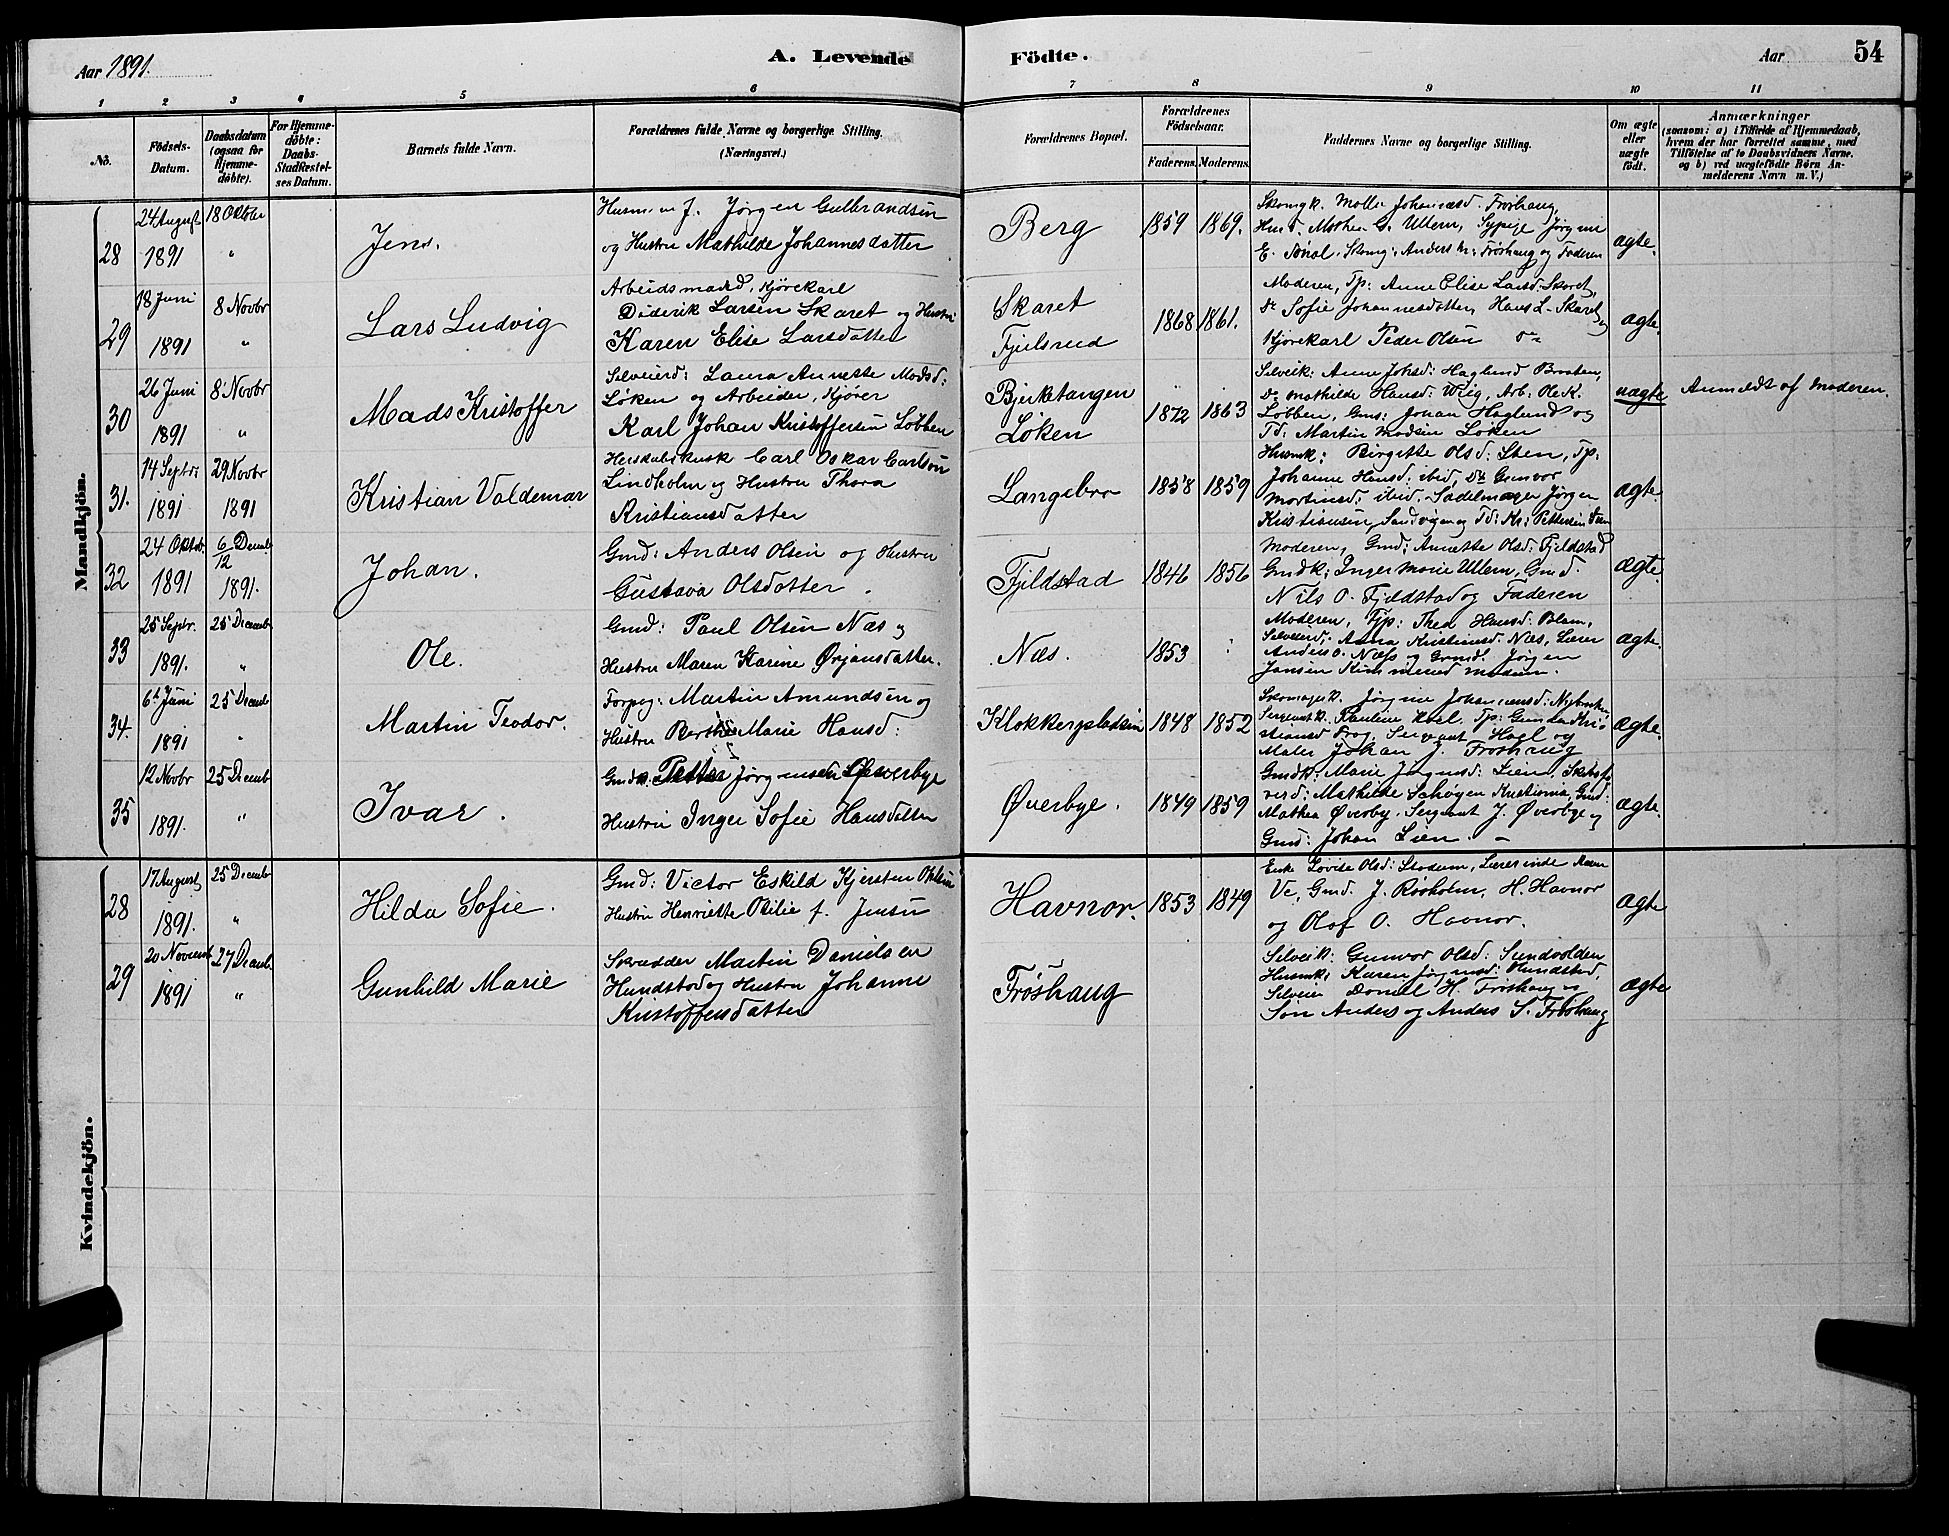 Aar 1891.
A. Levende Födte.
Aar 54
1 2 3 4 5 6 7 8 9 10 11
No.
Födsels-Datum.
Daabsdatum (ogsaa for Hjemme-döbte).
For Hjemme-döbte: Daabs-Stadfæstel-ses Datum.
Barnets fulde Navn.
Forældrenes fulde Navne og borgerlige Stilling.
(Næringsvei.)
Forældrenes Bopæl.
Forældrenes Födselsaar.
Faderens. Moderens.
Faddernes Navne og borgerlige Stilling.
Om ægte eller uægte födt.
Anmærkninger
(saasom: a) i Tilfælde af Hjemmedaab,
hvem der har forrettet samme, med
Tilföielse af to Daabsvidners Navne,
og b) ved uægtefödte Börn An-
melderens Navn m. V.)
Mandkjön.
28
24 August 1891
18 Oktober "
Jens.
Jörgen Gulbrandsen
og Hustru Mathilde Johannesdatter
Berg
1859 1869.
Frøshaug,
Ullern, Sypige Jörgine
Anders Frøshaug og Faderen
ægte.
29
18 Juni 1891
8 Novbr "
Lars Ludvig
Arbeidsmand, Kjørekarl
Diderik Larsen Skaret og Hustru
Karen Elise Larsdatter
Skaret
Fjelsrud
1868 1861.
Moderen, Tp: Anne Elise Larsd: Skaret,
Do Sofie Johannesdatter, Hans L. Skaret og
Kjørekarl Peder Olsen
ægte.
30
26 Juni 1891
8 Novbr "
Mads Kristoffer
Selveierd: Laura Annette Madsd:
Løken og Arbeider, Kjører
Karl Johan Kristoffersen Løbben
Bjerketangen
Løken
1872 1863
Selveik: Anne Johsd: Haglund Braaten,
Do Mathilde Hansd: Wiig, Arb: Ole K.
Løbben, Gmd: Johan Haglund og
Td: Martin Madsen Løken
uægte
Anmeldt af Moderen.
31.
14 Septbr 1891
29 Novbr 1891
Kristian Valdemar
Herskabskusk Carl Oskar Carlsen
Lindholm og Hustru Thora
Kristiansdatter
Langebro
1858 1859
Husmk: Birgitte Olsd: Steen, Tp:
Johanne Hansd: ibid, Do Gunvor
Martinsd: ibid. Sadelmager Jörgen
Kristiansen, Sandvigen og Td: Kr: Pettersen
ægte.
32
24 Oktob. 1891
6/12 Decemb 1891.
Johan.
Gmd: Anders Olsen og Hustru
Gustava Olsdatter.
Fjeldstad
1846 1856
Moderen, Gmd: Annette Olsd: Fjeldstad
Gmdk: Inger Marie Ullern, Gmd.
Nils O. Fjeldstad og Faderen
ægte.
33
25 Septr. 1891.
25 Decemb "
Ole.
Gmd: Paul Olsen Næs og
Hustru Maren Karine Ørjansdatter.
Næs.
1853
Moderen, Tp: Thea Hansd:
Selveierd: Anna Kristiansd: Næs, Lærer
Anders O. Næss og Gmd. Jörgen
Jansen
ægte.
34.
6te Juni 1891
25 Decemb "
Martin Teodor.
Forpag: Martin Amundsen og
Hustru Berthe Marie Hansd:
Klokkerpladsen
1848 1852
Skomagerk. Jörgine
Sergeantk. Pauline Hoel. Tp: Gunda Kri-
stiansd Frog, Sergeant Hoel og
Maler Johan J. Frøshaug
ægte.
35
12 Novbr 1891.
25 Decemb "
Ivar.
Gmd. Petter Jörgensen Øverbye
Hustru Inger Sofie Hansdatter
Øverbye.
1849 1859
Gmdk: Marie Jörgensd: Lien,
Mathilde Schøyen Kristiania, Gmd:
Mathea Øverby. Sergeant J. Øverbye og
Gmd: Johan Lien.
ægte.
Kvindekjön.
28
17 August 1891.
25 Decemb "
Hilda Sofie.
Gmd: Victor Eskild Kjersten Ottesen
Hustru Henriette Otilie f. Jensen
Havnor.
1853 1849
Enke Lovise Olsd: Stadum, Lærerinde
Ve, Gmd. J. Røsholm, H. Havnor
og Olaf O. Havnor.
ægte
29
20 Novemb 1891
27 Decemb. "
Gunhild Marie
Skrædder Martin Danielsen
Hundstad og Hustru Johanne
Kristoffersdatter
Frøshaug
Selveik: Gunvor Olsd: Sundvolden
Husmk: Karen Jörgensd: Hundstad,
Selveier Daniel H. Frøshaug og
Søn Anders og Anders S. Frøshaug
ægte